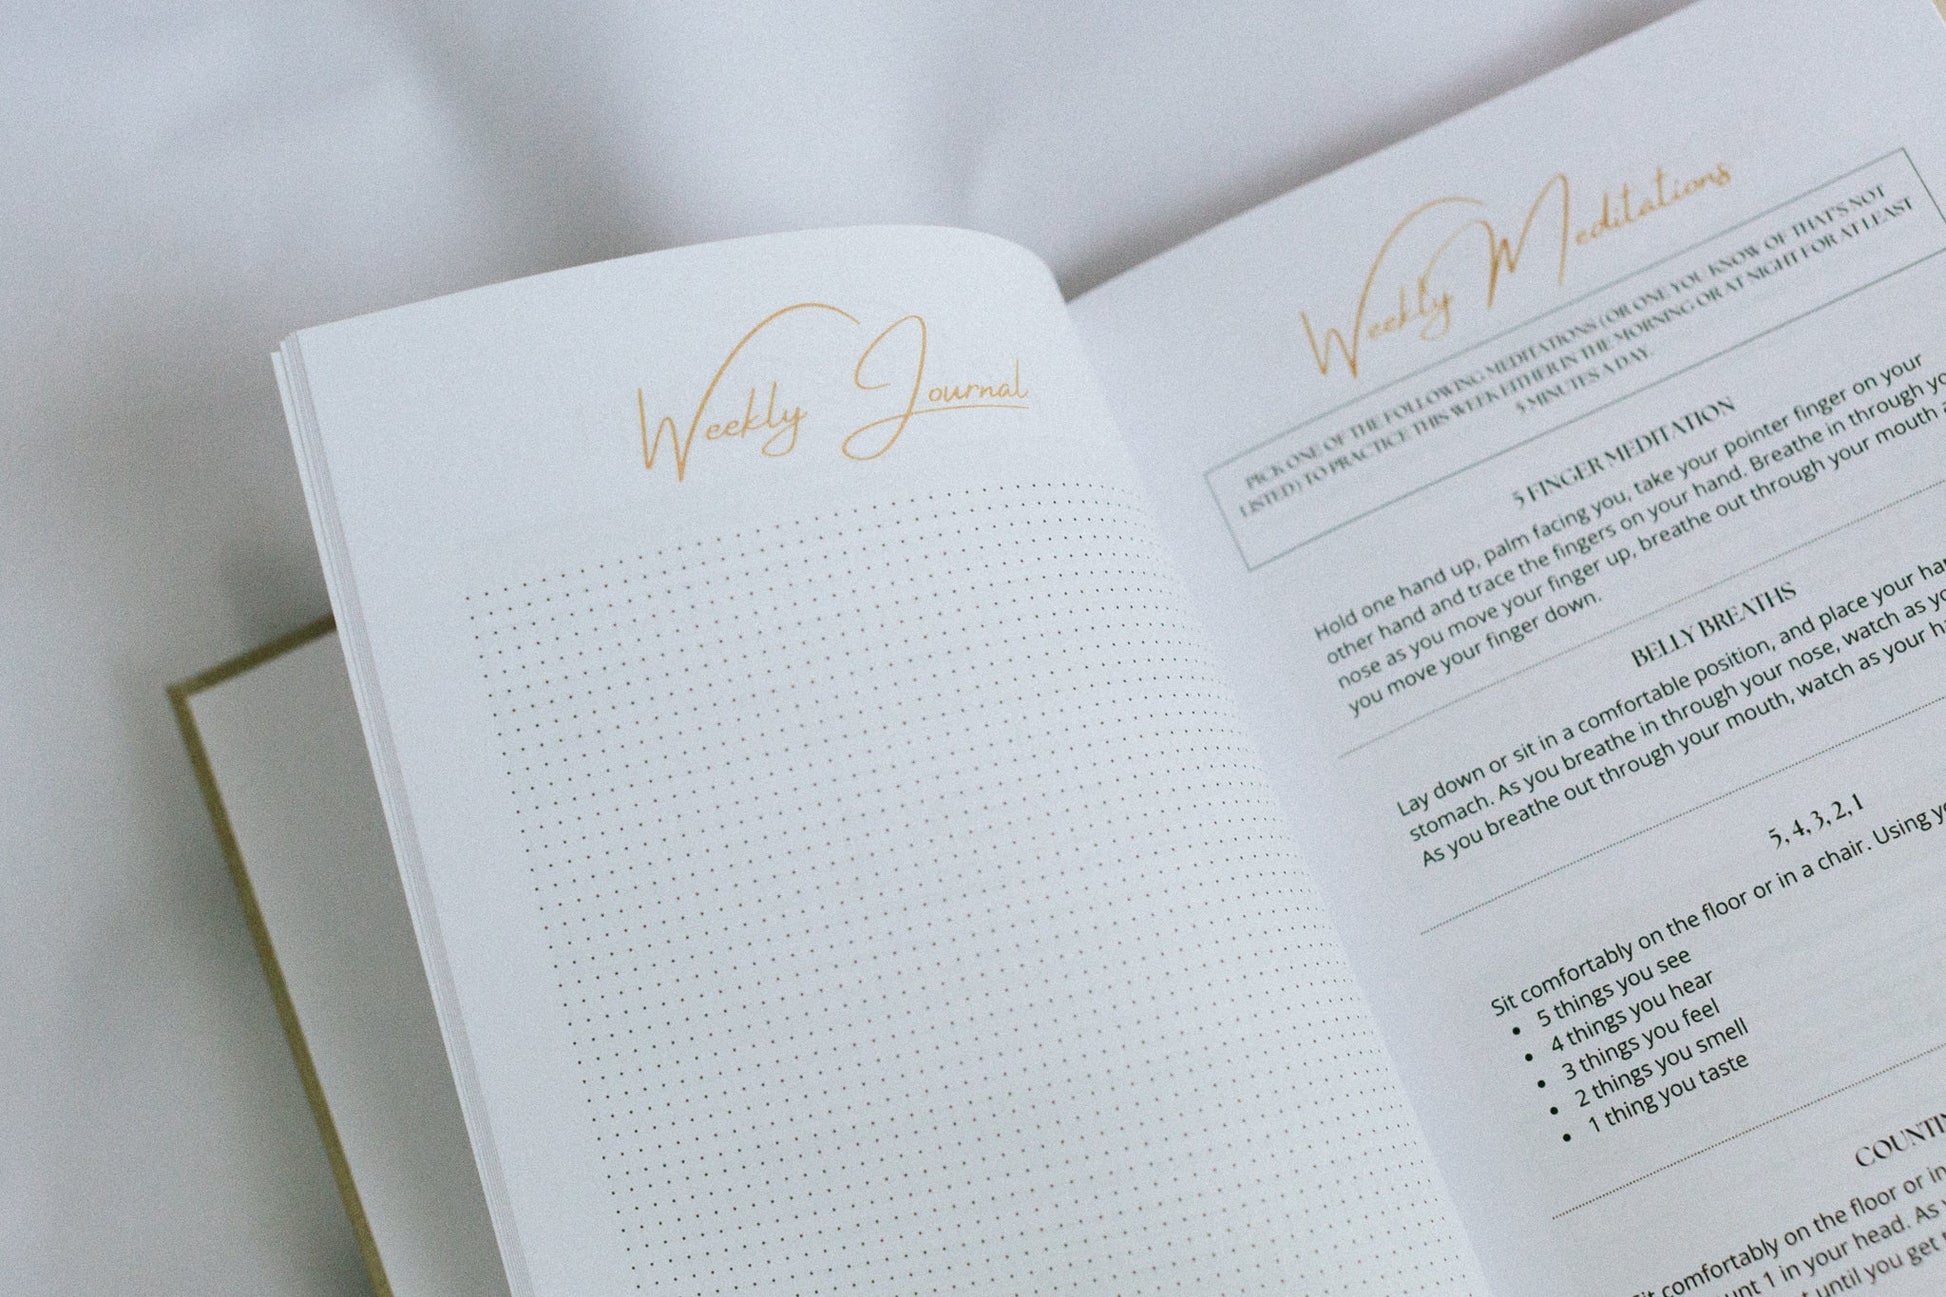 Weekly Journal
Weekly Meditations
PICK ONE OF THE FOLLOWING MEDITATIONS (OR ONE YOU KNOW OF THAT'S NOT
LISTED) TO PRACTICE THIS WEEK EITHER IN THE MORNING OR AT NIGHT FOR AT LEAST
5 MINUTES A DAY.
5 FINGER MEDITATION
Hold one hand up, palm facing you, take your pointer finger on your
other hand and trace the fingers on your hand. Breathe in through
nose as you move your finger up, breathe out through your mouth
you move your finger down.
BELLY BREATHS
Lay down or sit in a comfortable position, and place your
stomach. As you breathe in through your nose, watch as
As you breathe out through your mouth, watch as your
5, 4, 3, 2, 1
Sit comfortably on the floor or in a chair. Using
• 5 things you see
• 4 things you hear
• 3 things you feel
• 2 things you smell
• 1 thing you taste
Sit comfortably on the floor or in
1 in your head. As
until you get